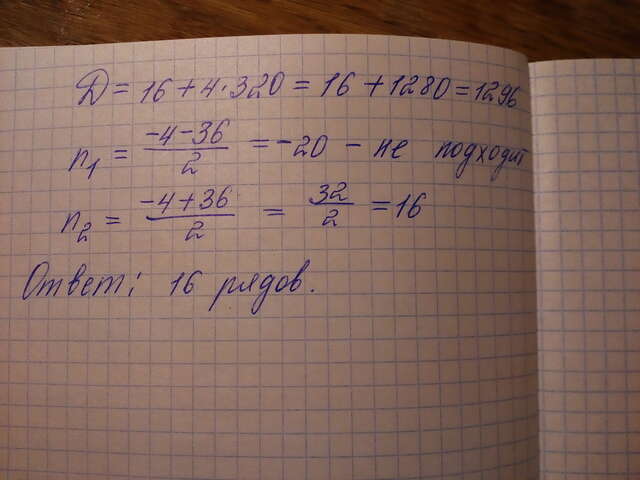 D = 16 + 4 · 320 = 16 + 1280 = 1296
n₁ = (-4-36)/2 = -20 - не подходит
n₂ = (-4+36)/2 = 32/2 = 16
Ответ: 16 рядов.